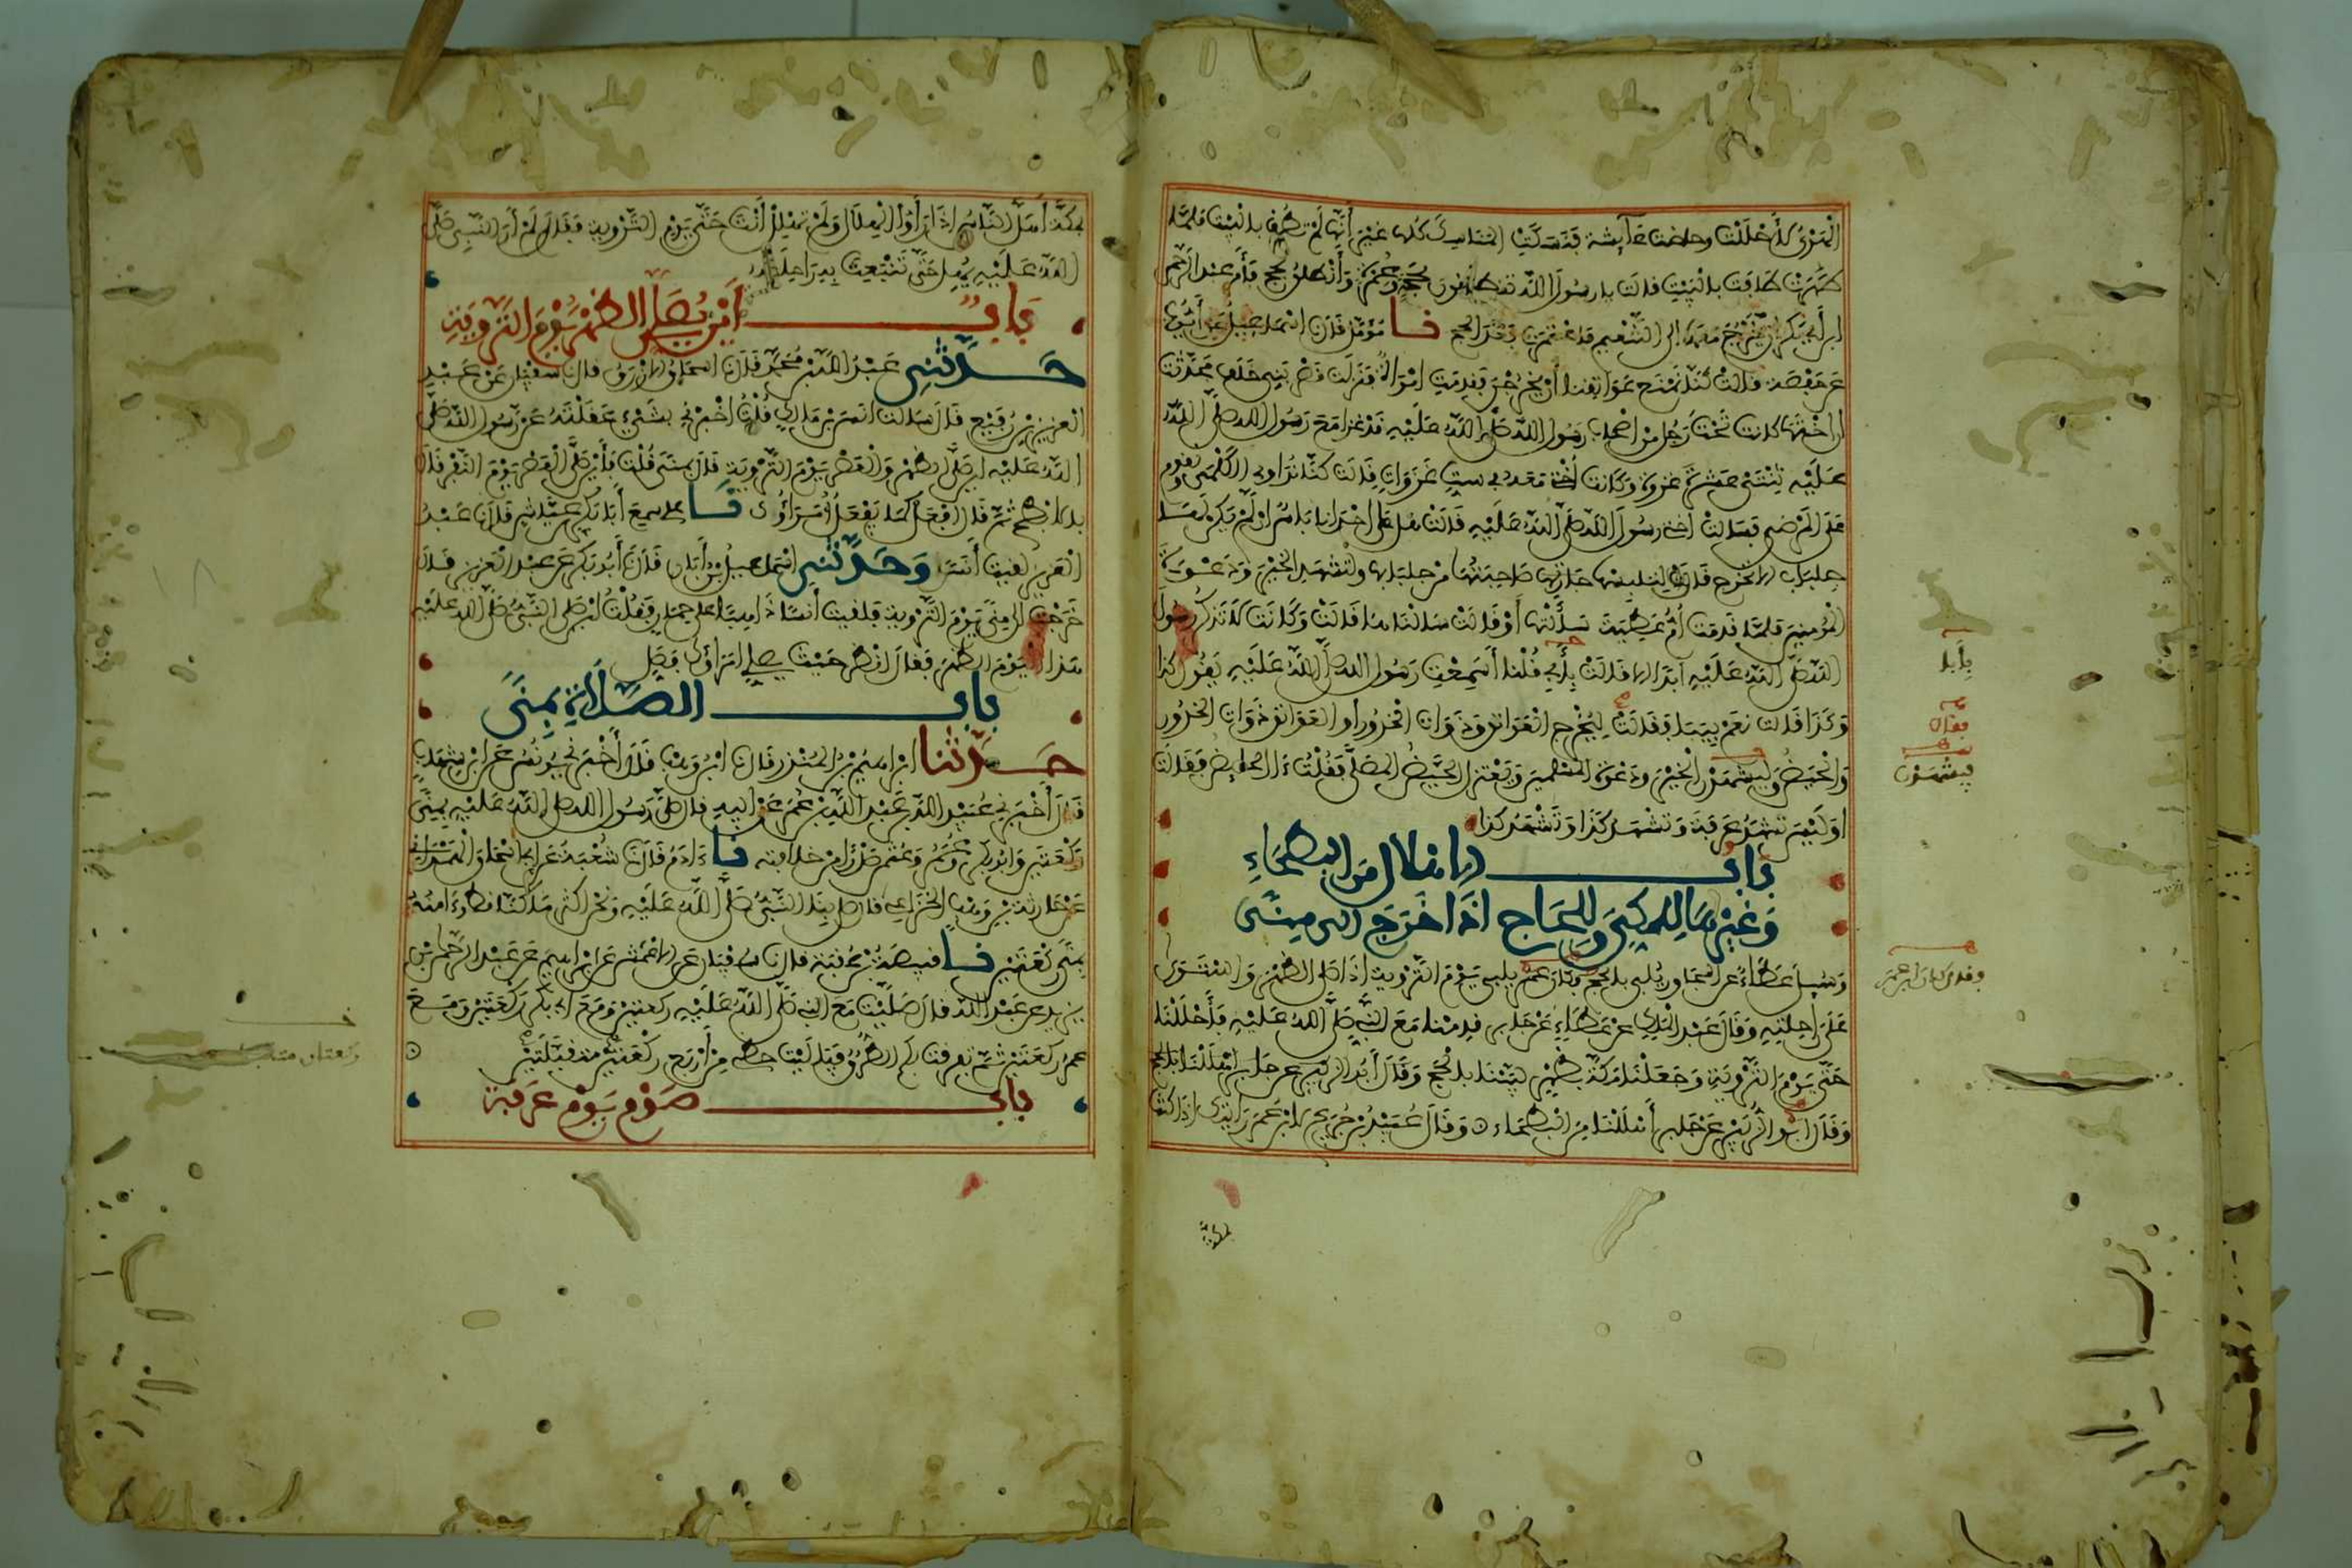 الهدي لأحللت وحاضت عآيشة فنسكت المناسك كلها غير أنها لم تطف بالبيت فلما
طهرت طافت بالبيت قالت يا رسول الله تنطلقون بحجة وعمرة وأنطلق بحج فأمر عبد الرحمن
ابن أبي بكر أن يخرج معها إلى التنعيم فاعتمرت بعد الحج نا مؤمل قال نا إسماعيل عن أيوب
عن حفصة قالت كنا نمنع عواتقنا أن يخرجن فقدمت امرأة فنزلت قصر بني خلف فحدثت
أن أختها كانت تحت رجل من أصحاب رسول الله صلى الله عليه قد غزا مع رسول الله صلى الله
عليه ثنتي عشرة غزوة وكانت أختي معه في ست غزوات قالت كنا نداوي الكلمى ونقوم
على المرضى فسالت أختي رسول الله صلى الله عليه فقالت هل على إحدانا باس إن لم يكن لها
جلباب ألا تخرج قال لتلبسها صاحبتها من جلبابها ولتشهد الخير ودعوة
المؤمنين فلما قدمت أم عطية سألنها أو قالت سالناها قالت وكانت لا تذكر رسول
الله صلى الله عليه أبدا إلا قالت بأبي قلنا أسمعت رسول الله صلى الله عليه يقول كذا
وكذا قالت نعم بيبا فقالت ليخرج العواتق وذوات الخدور أو العواتق ذوات الخدور
والحيض وليشهدن الخير ودعوة المسلمين ويعتزل الحيض المصلى فقلت ءالحايض فقالت
أو ليس تشهد عرفة وتشهد كذا وتشهد كذا
باب الإهلال من البطحاء
وغيرها للمكي وللحاج إذا خرج إلى منى
وسيل عطاء عن المجاور يلبي بالحج وكان ابن عمر يلبي يوم التروية إذا صلى الظهر واستوى
على راحلته وقال عبد الملك عن عطاء عن جابر قدمنا مع النبي صلى الله عليه فأحللنا
حتى يوم التروية وجعلنا مكة بظهر لبينا بالحج وقال أبو الزبير عن جابر أهللنا بالحج
وقال أبو الزبير عن جابر أهللنا من البطحاء وقال عبيد بن جريج لابن عمر رأيتك إذا كنت
بأبا
فقال
فيشهدن
بمكة
بمكة أهل الناس إذا رأوا الهلال ولم تهلل أنت حتى يوم التروية فقال لم أر النبي صلى
الله عليه يهل حتى تنبعث به راحلته
باب أين يصلي الظهر يوم التروية
حدثني عبد الله بن محمد قال نا إسحاق الأزرق قال نا سفيان عن عبد
العزيز بن رفيع قال سالت أنس بن مالك قلت أخبرني بشيء عقلته عن رسول الله صلى
الله عليه أين صلى الظهر والعصر يوم التروية قال بمنى قلت فأين صلى العصر يوم النفر قال
بالأبطح ثم قال افعل كما يفعل أمراؤك نا علي سمع أبا بكر بن عياش قال نا عبد
العزيز لقيت أنسا وحدثني إسماعيل بن أبان قال نا أبو بكر عن عبد العزيز قال
خرجت إلى منى يوم التروية فلقيت أنسا ذاهبا على حمار فقلت أين صلى النبي صلى الله عليه
هذا اليوم الظهر فقال انظر حيث يصلي أمراؤك فصل
باب الصلاة بمنى
حدثنا إبراهيم بن المنذر قال نا ابن وهب قال أخبرني يونس عن ابن شهاب
قال أخبرني عبيد الله بن عبد الله بن عمر عن أبيه قال صلى رسول الله صلى الله عليه بمنى
ركعتين وأبو بكر وعمر وعثمن صدرا من خلافته نا ءادم قال نا شعبة عن أبي إسحاق الهمداني
عن حارثة بن وهب الخزاعي قال صلى بنا النبي صلى الله عليه ونحن أكثر ما كنا قط وءامنه
بمنى ركعتين نا قبيصة بن عقبة قال نا سفيان عن الأعمش عن إبراهيم عن عبد الرحمن بن
يزيد عن عبد الله قال صليت مع النبي صلى الله عليه ركعتين ومع أبي بكر ركعتين ومع
عمر ركعتين ثم تفرقت بكم الطرق فيا ليت حظي من أربع ركعتين متقبلتين
باب صوم يوم عرفة